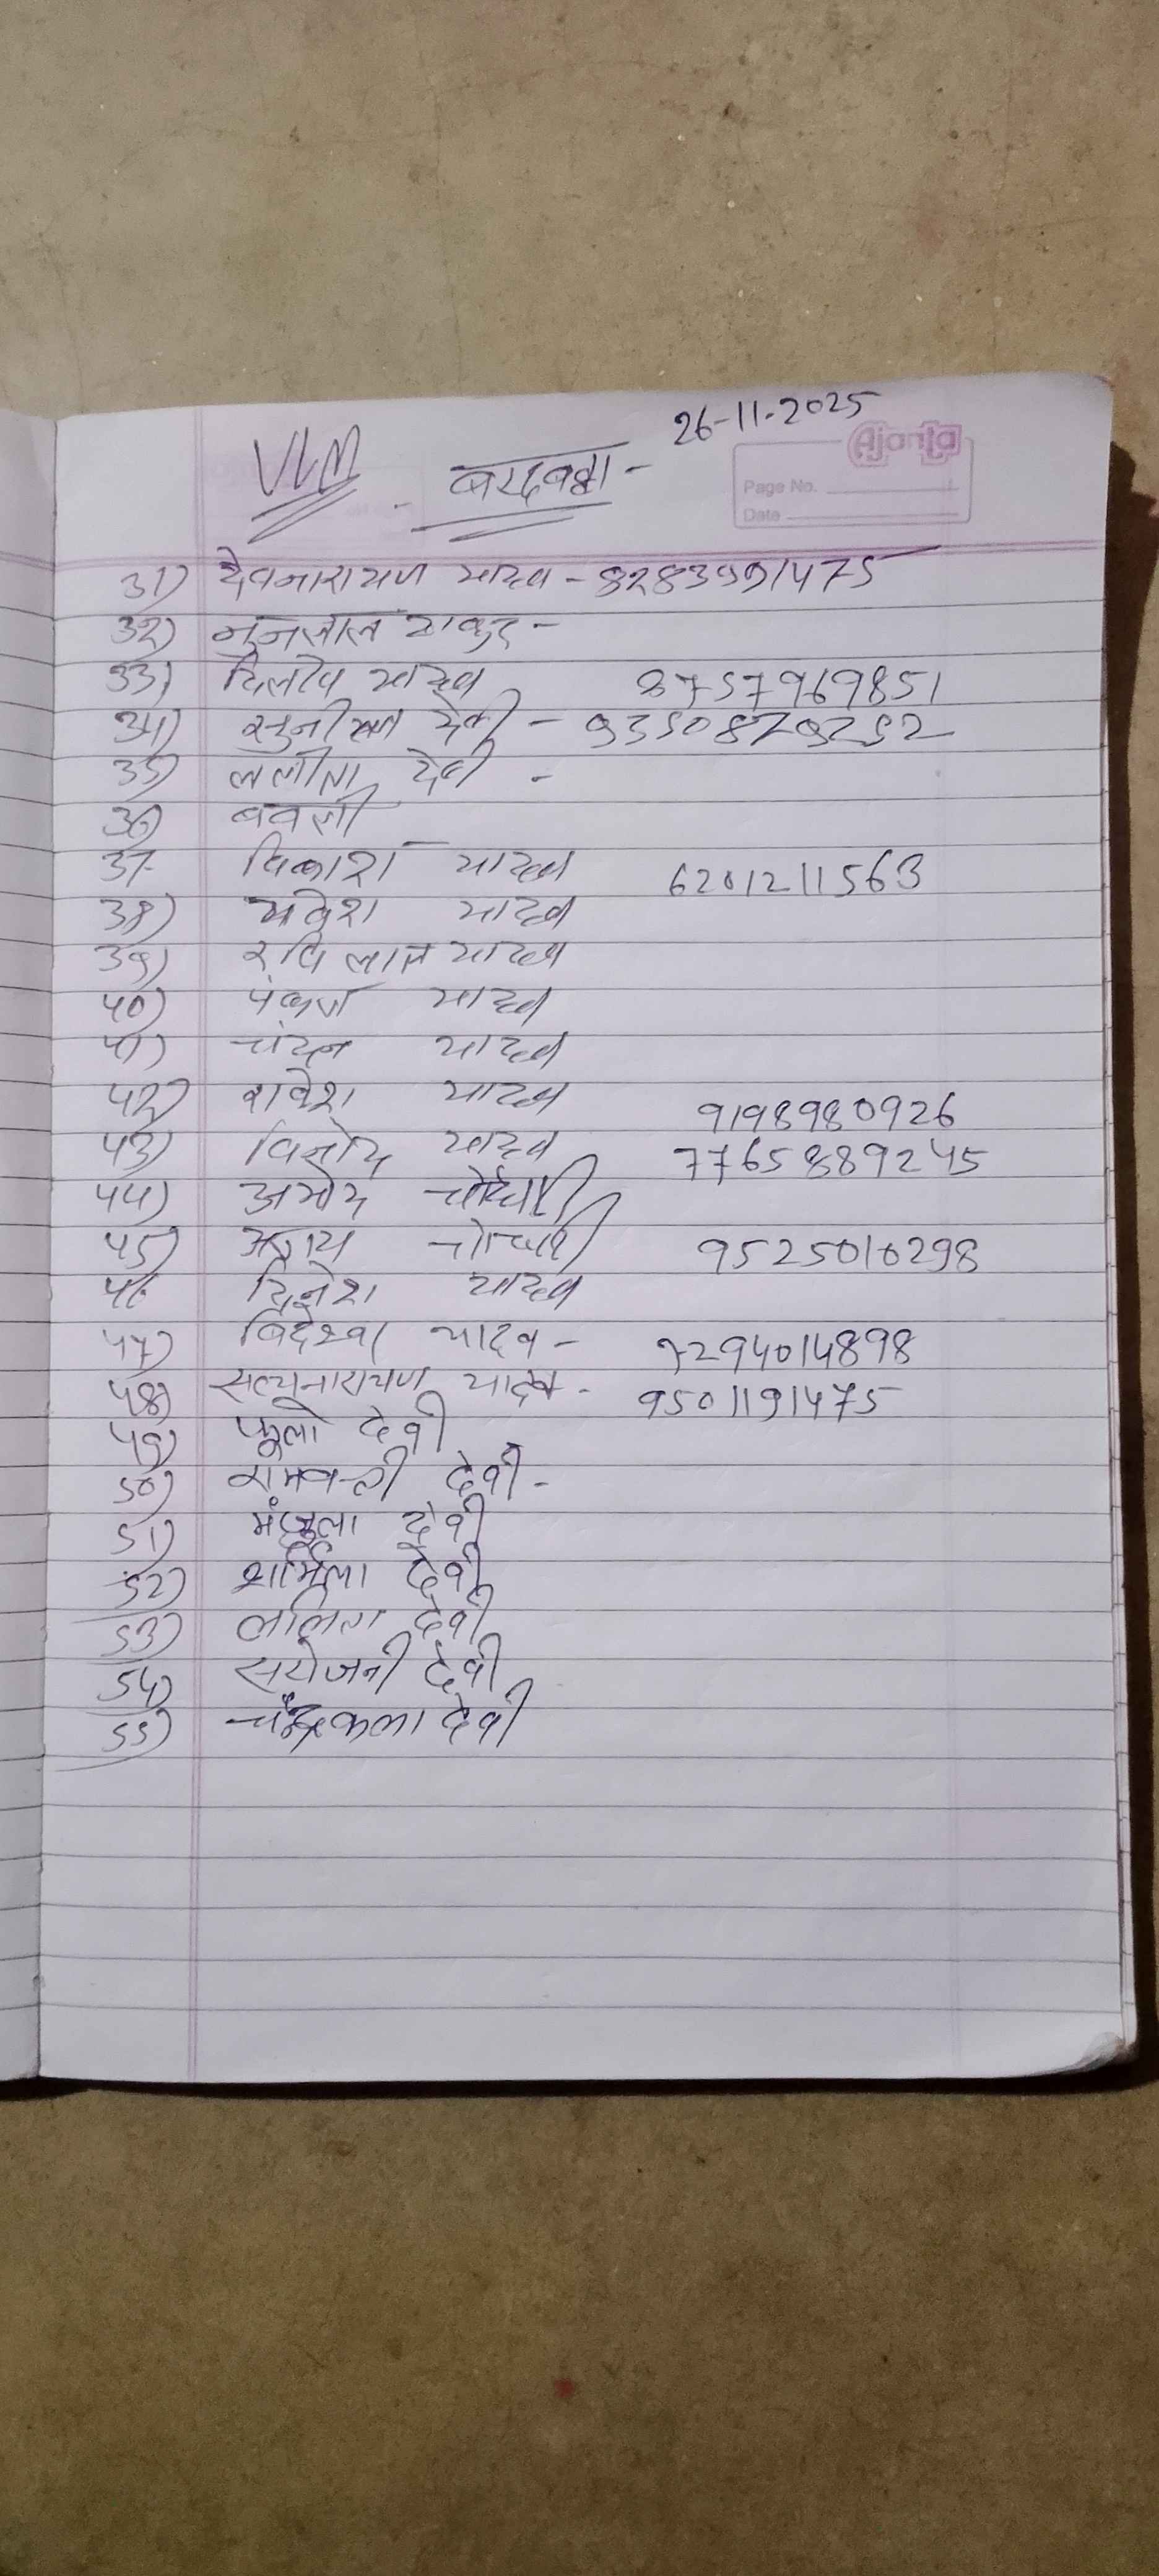 26-11-2025
VLM
Ajanta
Page No.
Date
31) देवनारायण यादव - 8283991475
32) नुनलाल ठाकुर -
33) दिलदेव यादव 8757969851
34) देवी -
35) ललीता देवी -
36)
37- विकाश यादव 6201211563
38) यादव
39) रविलाल यादव
40) पंकज यादव
41) चंदन यादव
42) यादव 9198980926
43) विनोद यादव 7765889245
44) चौधरी
45) अजय चौधरी 9525010298
46 दिनेश यादव
47) बिदेश्वर यादव - 7294014898
48) सत्यनारायण यादव - 9501191475
49) फूलो देवी
50) देवी -
51) मंजूला देवी
52) शर्मिला देवी
53) ललिता देवी
54) सरोजनी देवी
55) चंद्रकला देवी